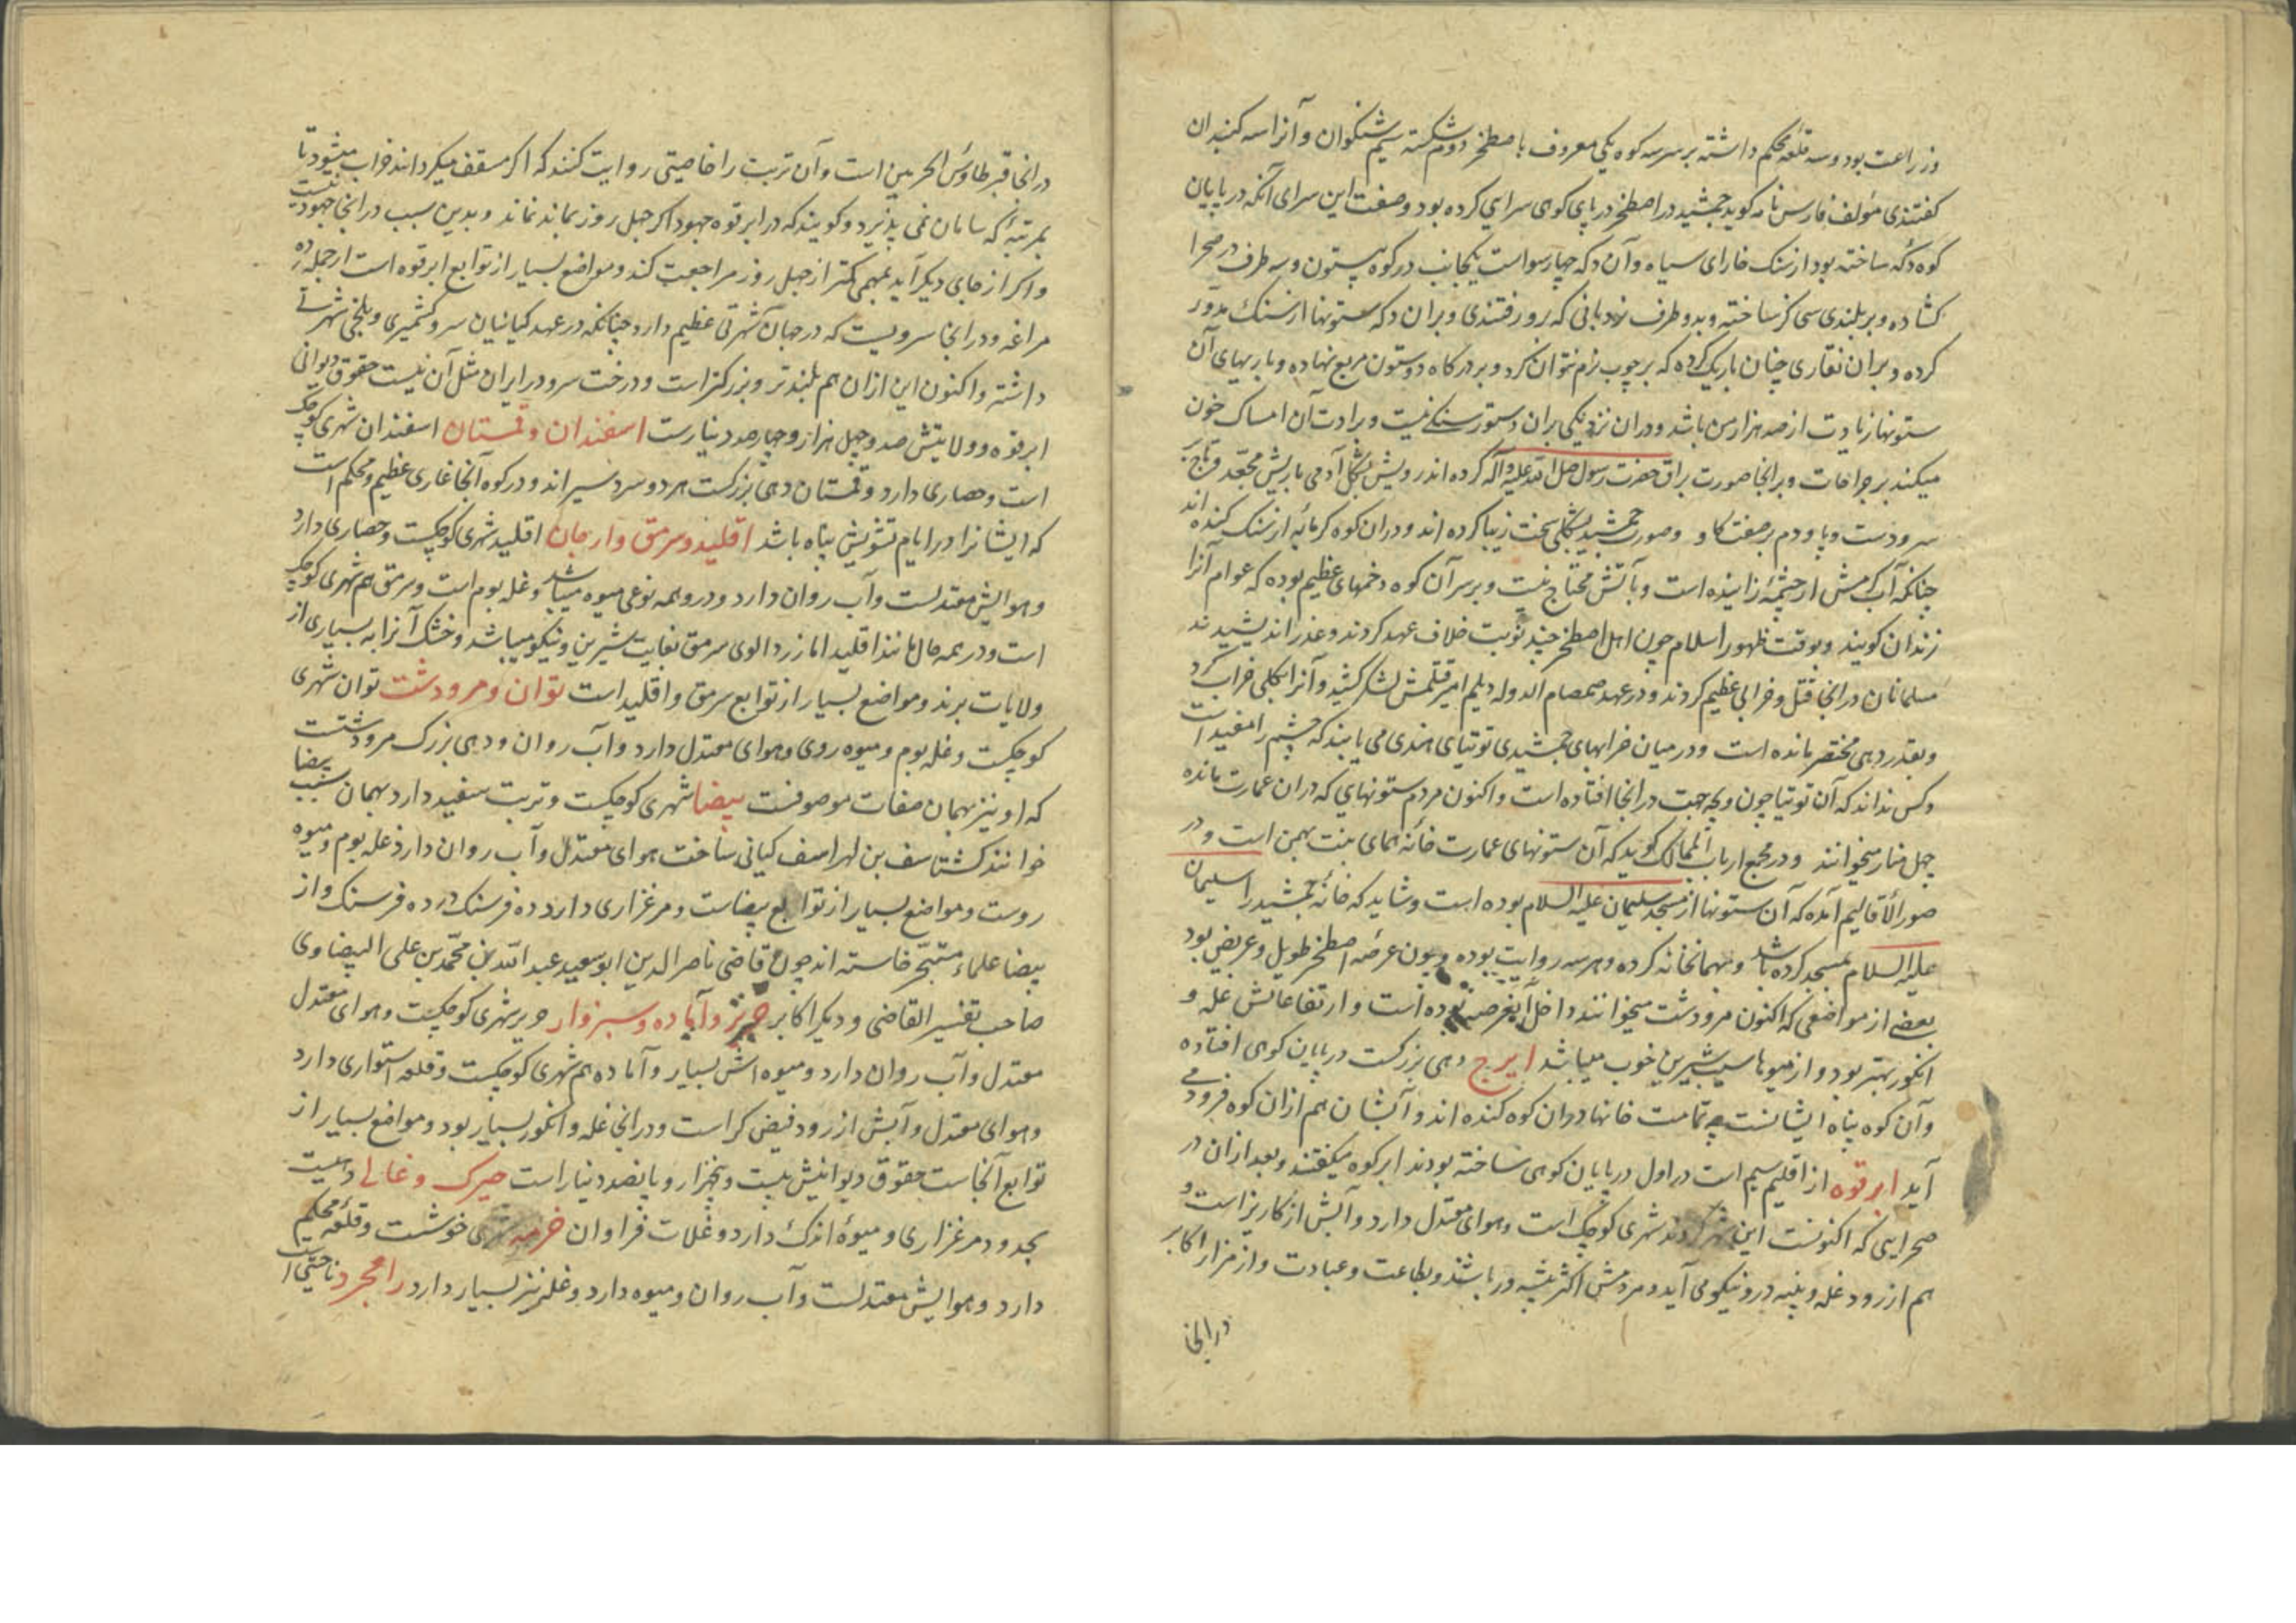 وزراعت بود و سه قلعه محکم داشته بر سر سه کوه یکی معروف باصطخر دوم شکسته سیم شنکوان و آنرا سه کنبدان
کفتندی مؤلف فارس نامه کوید جمشید در اصطخر در پای کوهی سرایی کرده بود و صفت این سرای آنکه در پایان
کوه دکه ساخته بود از سنک خارای سیاه و آن دکه چهارسو است یکجانب در کوه پیستون و سه طرف در صحرا
کشاده و بر بلندی سی کز ساخته و بدو طرف نردبانی که برو رفتندی و بران دکه ستونها از سنک مدور
کرده و بران نقاری چنان باریک کرده که بر چوب نرم نتوان کرد و بر درکاه دو ستون مربع نهاده و باریهای آن
ستونها زیادت از صد هزار من باشد و دران نزدیکی بران دستور سنکی نیست و برادت آن امساک خون
میکند بر جراحات و برانجا صورت براق حضرت رسول صلی الله علیه و آله کرده اند رویش بشکل آدمی با ریش مجعد و تاج بر
سر و دست و پا و دم بر صفت کاو و صورت جمشید بشکلی سخت زیبا کرده اند و دران کوه کرمابه از سنک کنده اند
چنانکه آب کرمش از چشمه زاینده است و بآتش محتاج نیست و بر سر آن کوه دخمهای عظیم بوده که عوام آنرا
زندان کویند و بوقت ظهور اسلام چون اهل اصطخر چند نوبت خلاف عهد کردند و غدر اندیشیدند
مسلمانان درانجا قتل و خرابی عظیم کردند و در عهد صمصام الدوله دیلم امیر قتلمش لشکر کشید و آنرا بکلی خراب کرد
و بقدر دهی مختصر مانده است و در میان خرابهای جمشیدی توتیای هندی می یابند که چشم را مفید است
و کس نداند که آن توتیا چون و بچه جهت درانجا افتاده است و اکنون مردم ستونهای که دران عمارت مانده
چهل منار میخوانند و در مجمع ارباب الممالک کوید که آن ستونهای عمارت خانه همای بنت بهمن است و در
صور الأقالیم آمده که آن ستونها از مسجد سلیمان علیه السلام بوده است و شاید که خانه جمشید را سلیمان
علیه السلام بمسجد کرده باشد و بهمانخانه کرده و هر سه روایت بوده و چون عرصه اصطخر طویل و عریض بود
بعضی از مواضعی که اکنون مرودشت میخوانند داخل آنعرصه بوده است و ارتفاعاتش غله و
انکور بهتر بود و از میوها سیب شیرین خوب میباشد ایرج دهی بزرکست در پایان کوهی افتاده
و آن کوه پناه ایشانست چه تمامت خانها دران کوه کنده اند و آبشان هم ازان کوه فرود می
آید ابرقوه از اقلیم سیم است در اول در پایان کوهی ساخته بودند ابر کوه میکفتند و بعد ازان در
صحرایی که اکنونست این شهر کردند شهری کوچک است و هوای معتدل دارد و آبش از کاریز است و
هم از رود غله و پنبه درو نیکو می آید و مردمش اکثر پیشه ور باشند و بطاعت و عبادت و از مزار اکابر
درانجا
درانجا قبر طاوس الحرمین است و آن تربت را خاصیتی روایت کنند که اکر مسقف میکردانند خراب میشود تا
بمرتبه که سایبان نمی پذیرد و کویند که در ابرقوه جهود اکر چهل روز بماند نماند و بدین سبب درانجا جهود نیست
و اکر از جای دیکر آید بمهمی کمتر از چهل روز مراجعت کند و مواضع بسیار از توابع ابرقوه است از جمله ده
مراغه و درانجا سرویست که در جهان شهرتی عظیم دارد چنانکه در عهد کیانیان سرو کشمیری و بلخی شهرتی
داشته و اکنون این ازان هم بلندتر و بزرکتر است و درخت سرو در ایران مثل آن نیست حقوق دیوانی
ابرقوه و ولایتش صد و چهل هزار و چهارصد دینارست اسفندان و قمستان اسفندان شهری کوچک
است و حصاری دارد و قمستان دهی بزرکست هر دو سردسیر اند و در کوه آنجا غاری عظیم و محکم است
که ایشانرا در ایام تشویش پناه باشد اقلید و سرمق و ارجان اقلید شهری کوچکست و حصاری دارد
و هوایش معتدلست و آب روان دارد و درو همه نوعی میوه میباشد و غله بوم است و سرمق هم شهری کوچک
است و در همه حال مانند اقلید اما زردالوی سرمق بغایت شیرین و نیکو میباشد و خشک آنرا به بسیاری از
ولایات برند و مواضع بسیار از توابع سرمق و اقلید است توان و مرودشت توان شهری
کوچکست و غله بوم و میوه روی و هوای معتدل دارد و آب روان و دهی بزرک مرودشتست
که او نیز بهمان صفات موصوفست بیضا شهری کوچکست و تربت سفید دارد بهمان سبب بیضا
خوانند کشتاسف بن لهراسف کیانی ساخت هوای معتدل و آب روان دارد غله بوم و میوه
روست و مواضع بسیار از توابع بیضاست و مرغزاری دارد ده فرسنک در ده فرسنک و از
بیضا علماء متبحر خاسته اند چون قاضی ناصر الدین ابو سعید عبد الله بن محمد بن علی البیضاوی
صاحب تفسیر القاضی و دیکر اکابر خبرز و آباده و سبزوار و بر شهری کوچکست و هوای معتدل
معتدل و آب روان دارد و میوه اش بسیار و آباده هم شهری کوچکست و قلعه استواری دارد
و هوای معتدل و آبش از رود فیض کر است و درانجا غله و انکور بسیار بود و مواضع بسیار از
توابع آنجاست حقوق دیوانیش بیست و پنجهزار و پانصد دینار است خیرک و غالی دهیست
بحدود مرغزاری و میوه اندک دارد و غلات فراوان خرمه شهری خوشست و قلعه محکم
دارد و هوایش معتدلست و آب روان و میوه دارد و غله نیز بسیار دارد رامجرد ناحیتی است